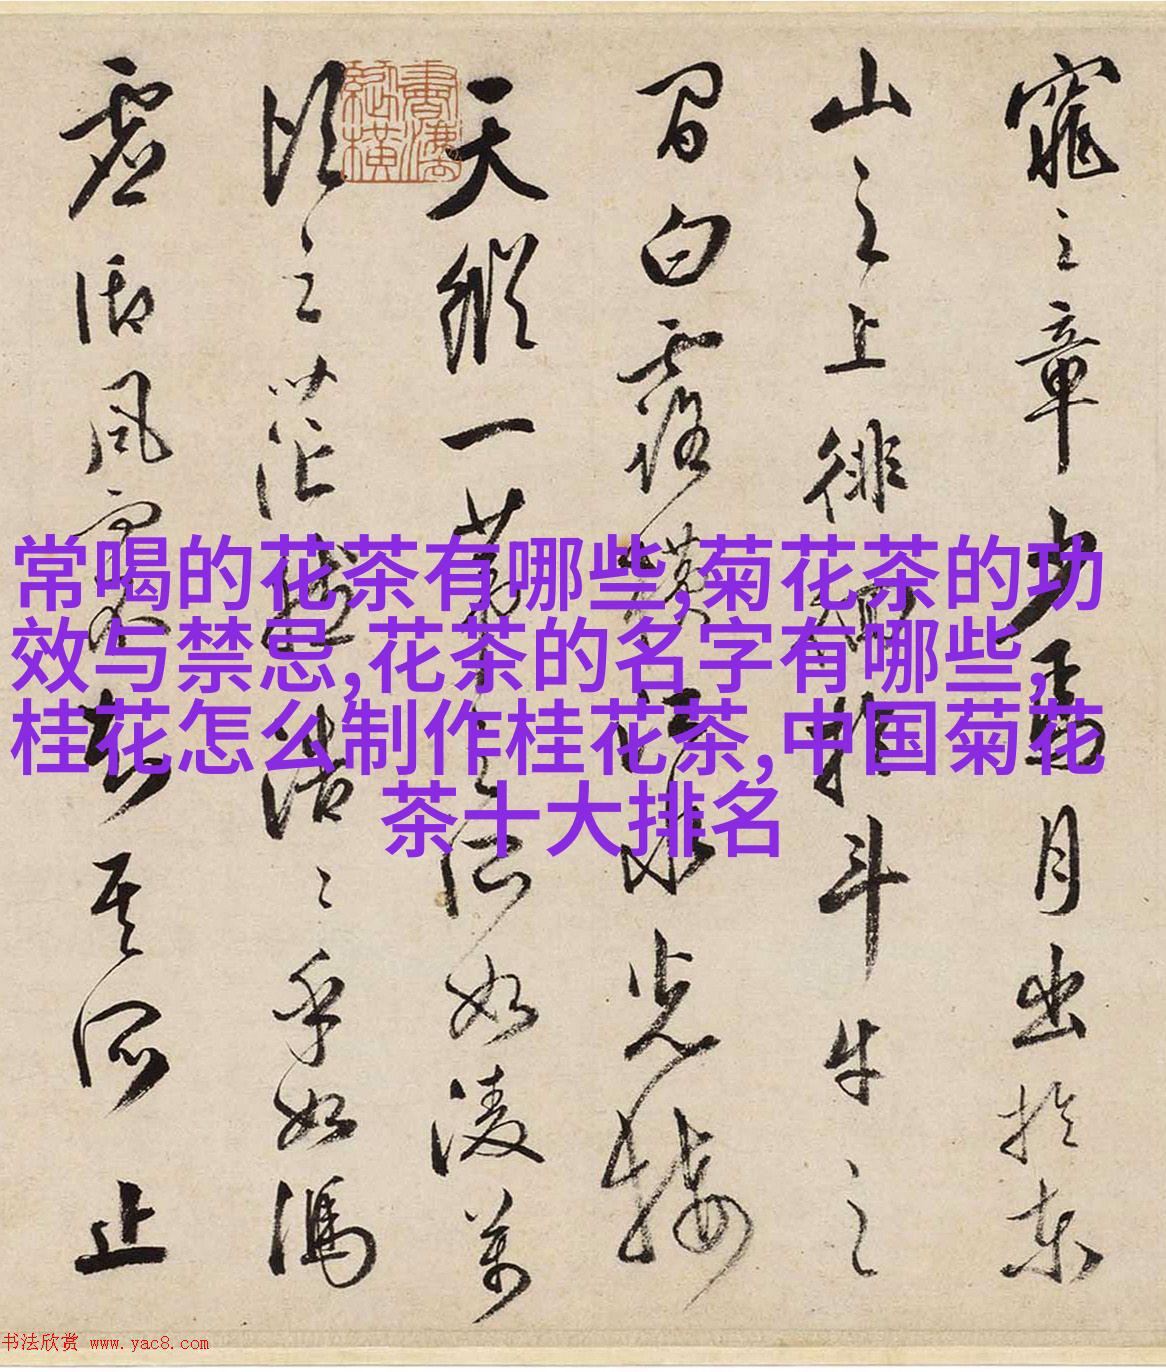 窕之章少焉月出於東
山之上徘徊於斗牛之
間白露横江水光接
天縱一葦之所如凌萬
頃之茫然浩〻乎如馮
虚御風而不知其所止
常喝的花茶有哪些,菊花茶的功
效与禁忌,花茶的名字有哪些,
桂花怎么制作桂花茶,中国菊花
茶十大排名
书法欣赏 www.yac8.com